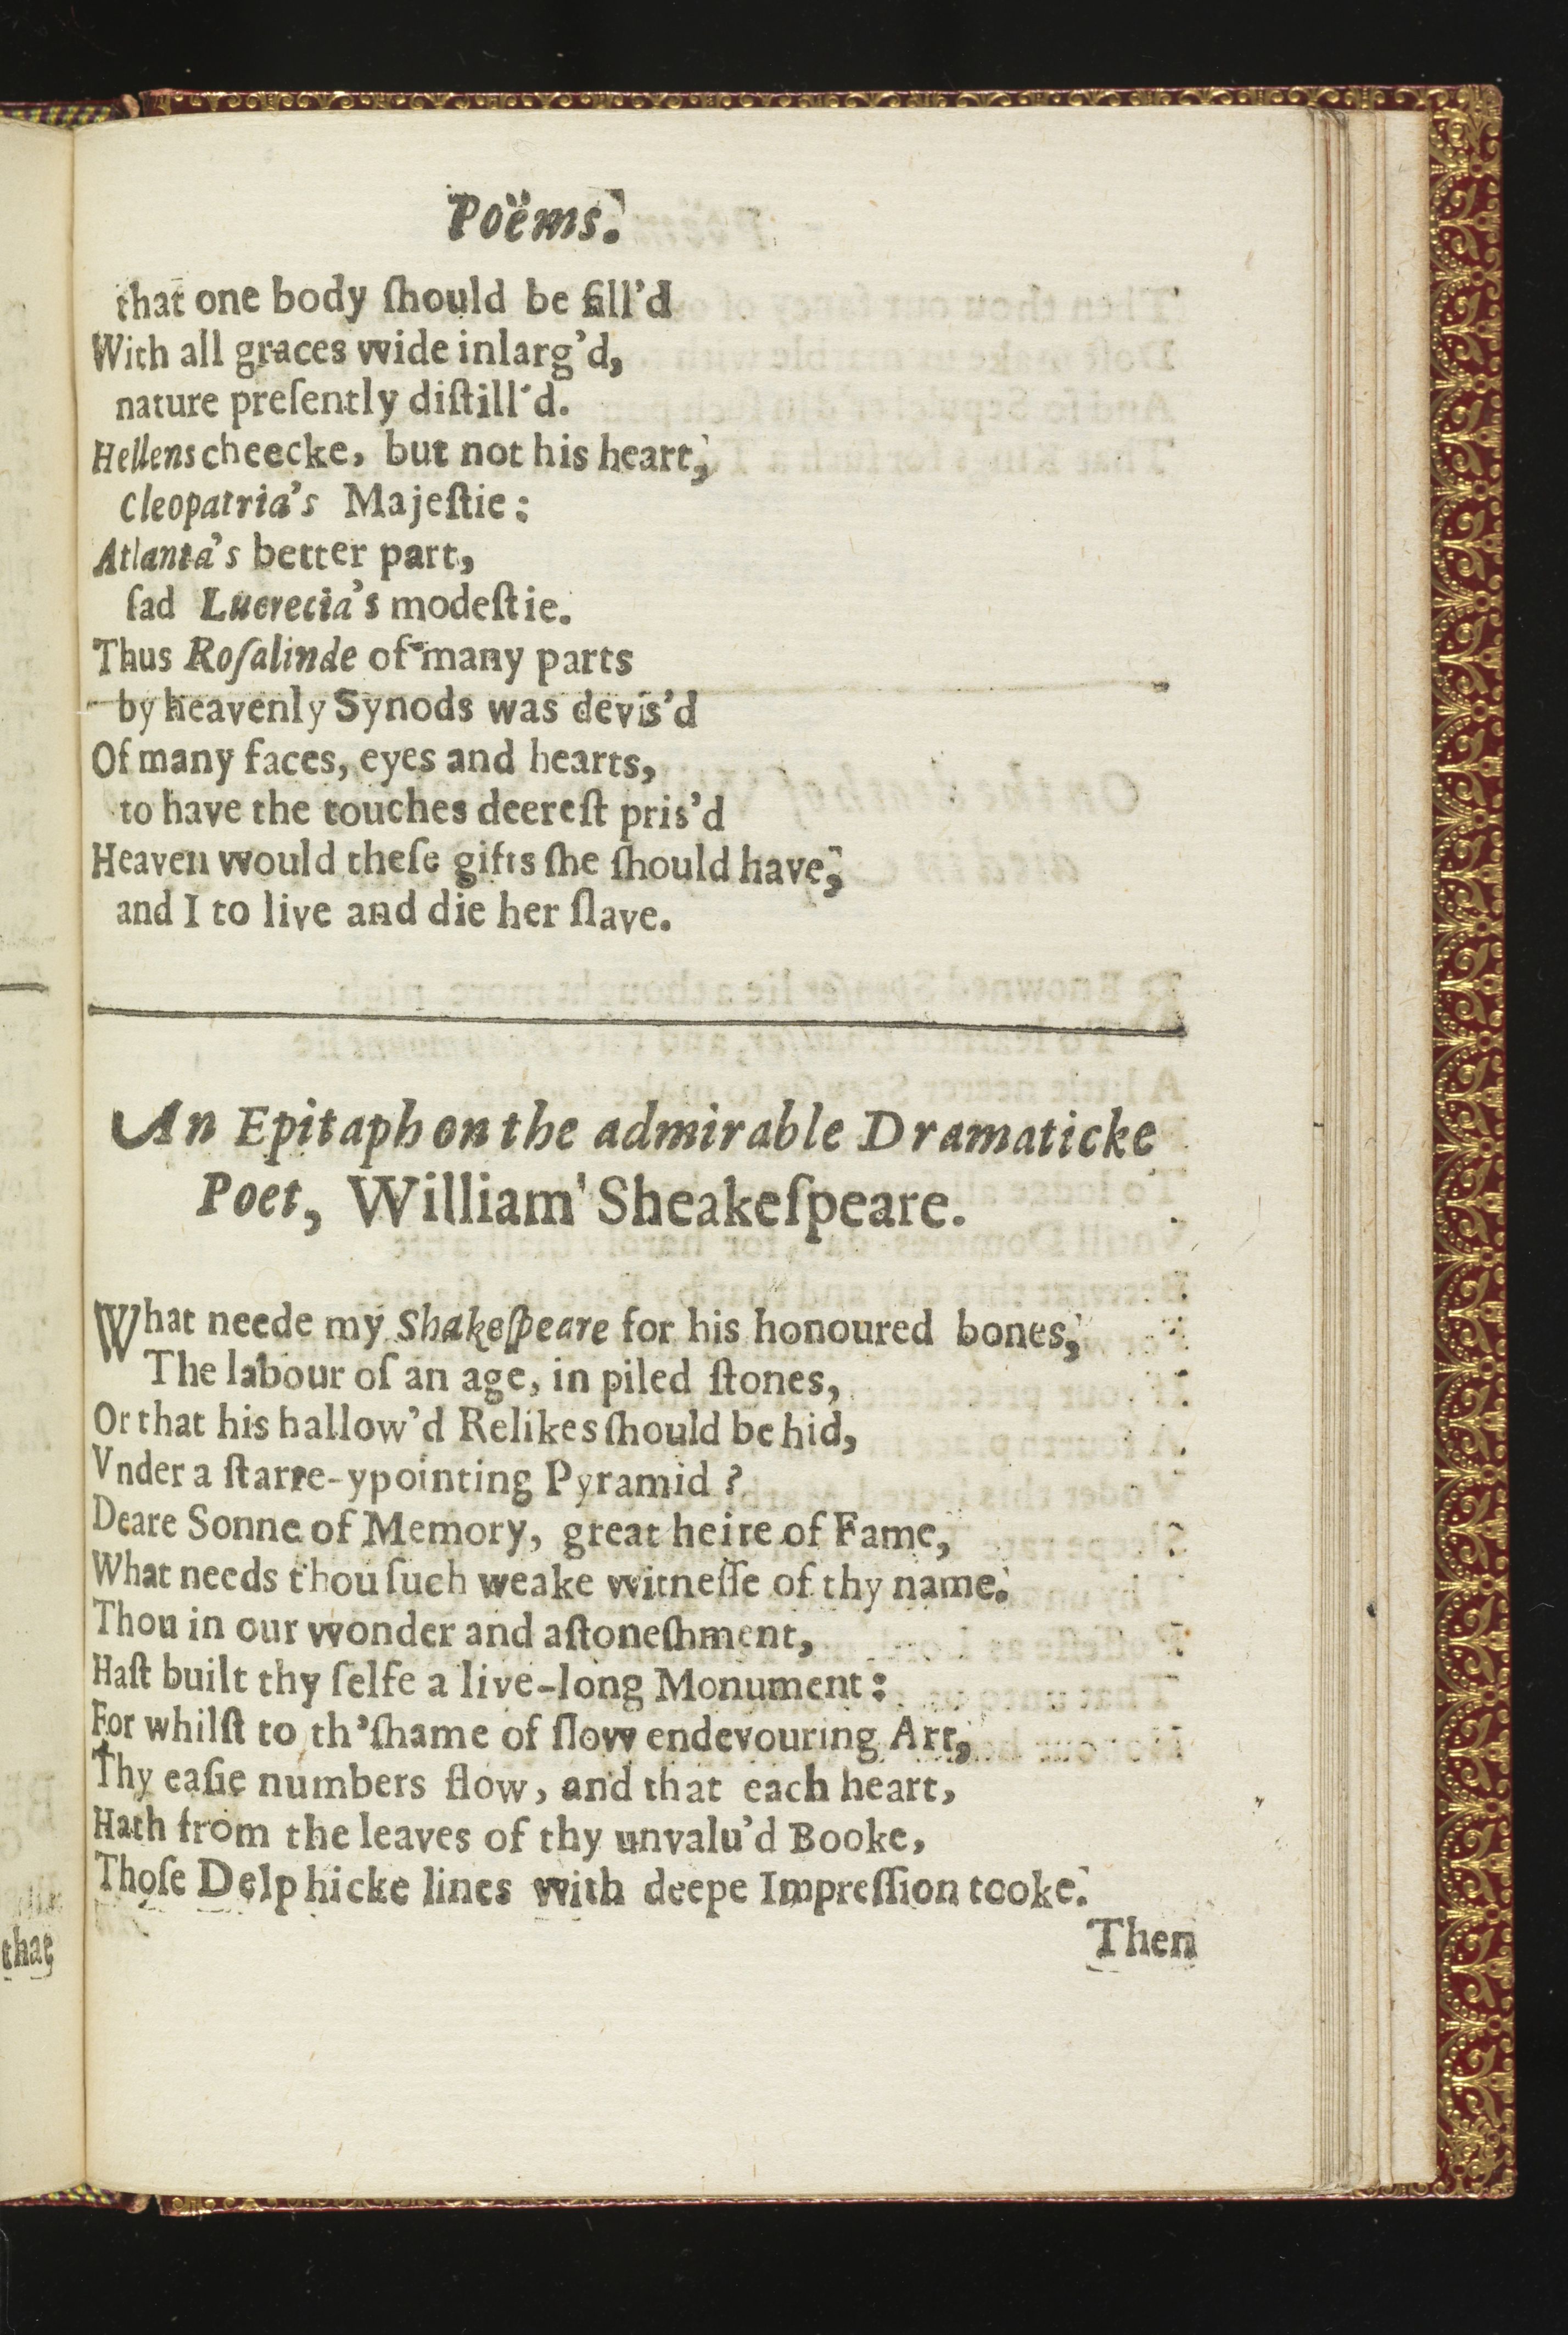 Poëms.
that one body ſhould be fill'd
With all graces wide inlarg'd,
nature preſently diſtill'd.
Hellens cheecke, but not his heart,
Cleopatria's Majeſtie:
Atlanta's better part,
ſad Lucrecia's modeſtie.
Thus Roſalinde of many parts
by heavenly Synods was devis'd
Of many faces, eyes and hearts,
to have the touches deereſt pris'd
Heaven would theſe gifts ſhe ſhould have,
and I to live and die her ſlave.
An Epitaph on the admirable Dramaticke
Poet, William Sheakeſpeare.
What neede my Shakeſpeare for his honoured bones,
The labour of an age, in piled ſtones,
Or that his hallow'd Relikes ſhould be hid,
Vnder a ſtarre-ypointing Pyramid?
Deare Sonne of Memory, great heire of Fame,
What needs thou ſuch weake witneſſe of thy name.
Thou in our wonder and aſtoneſhment,
Haſt built thy ſelfe a live-long Monument:
For whilſt to th'ſhame of ſlow endevouring Art,
Thy eaſie numbers flow, and that each heart,
Hath from the leaves of thy unvalu'd Booke,
Thoſe Delphicke lines with deepe Impreſſion tooke.
Then
that